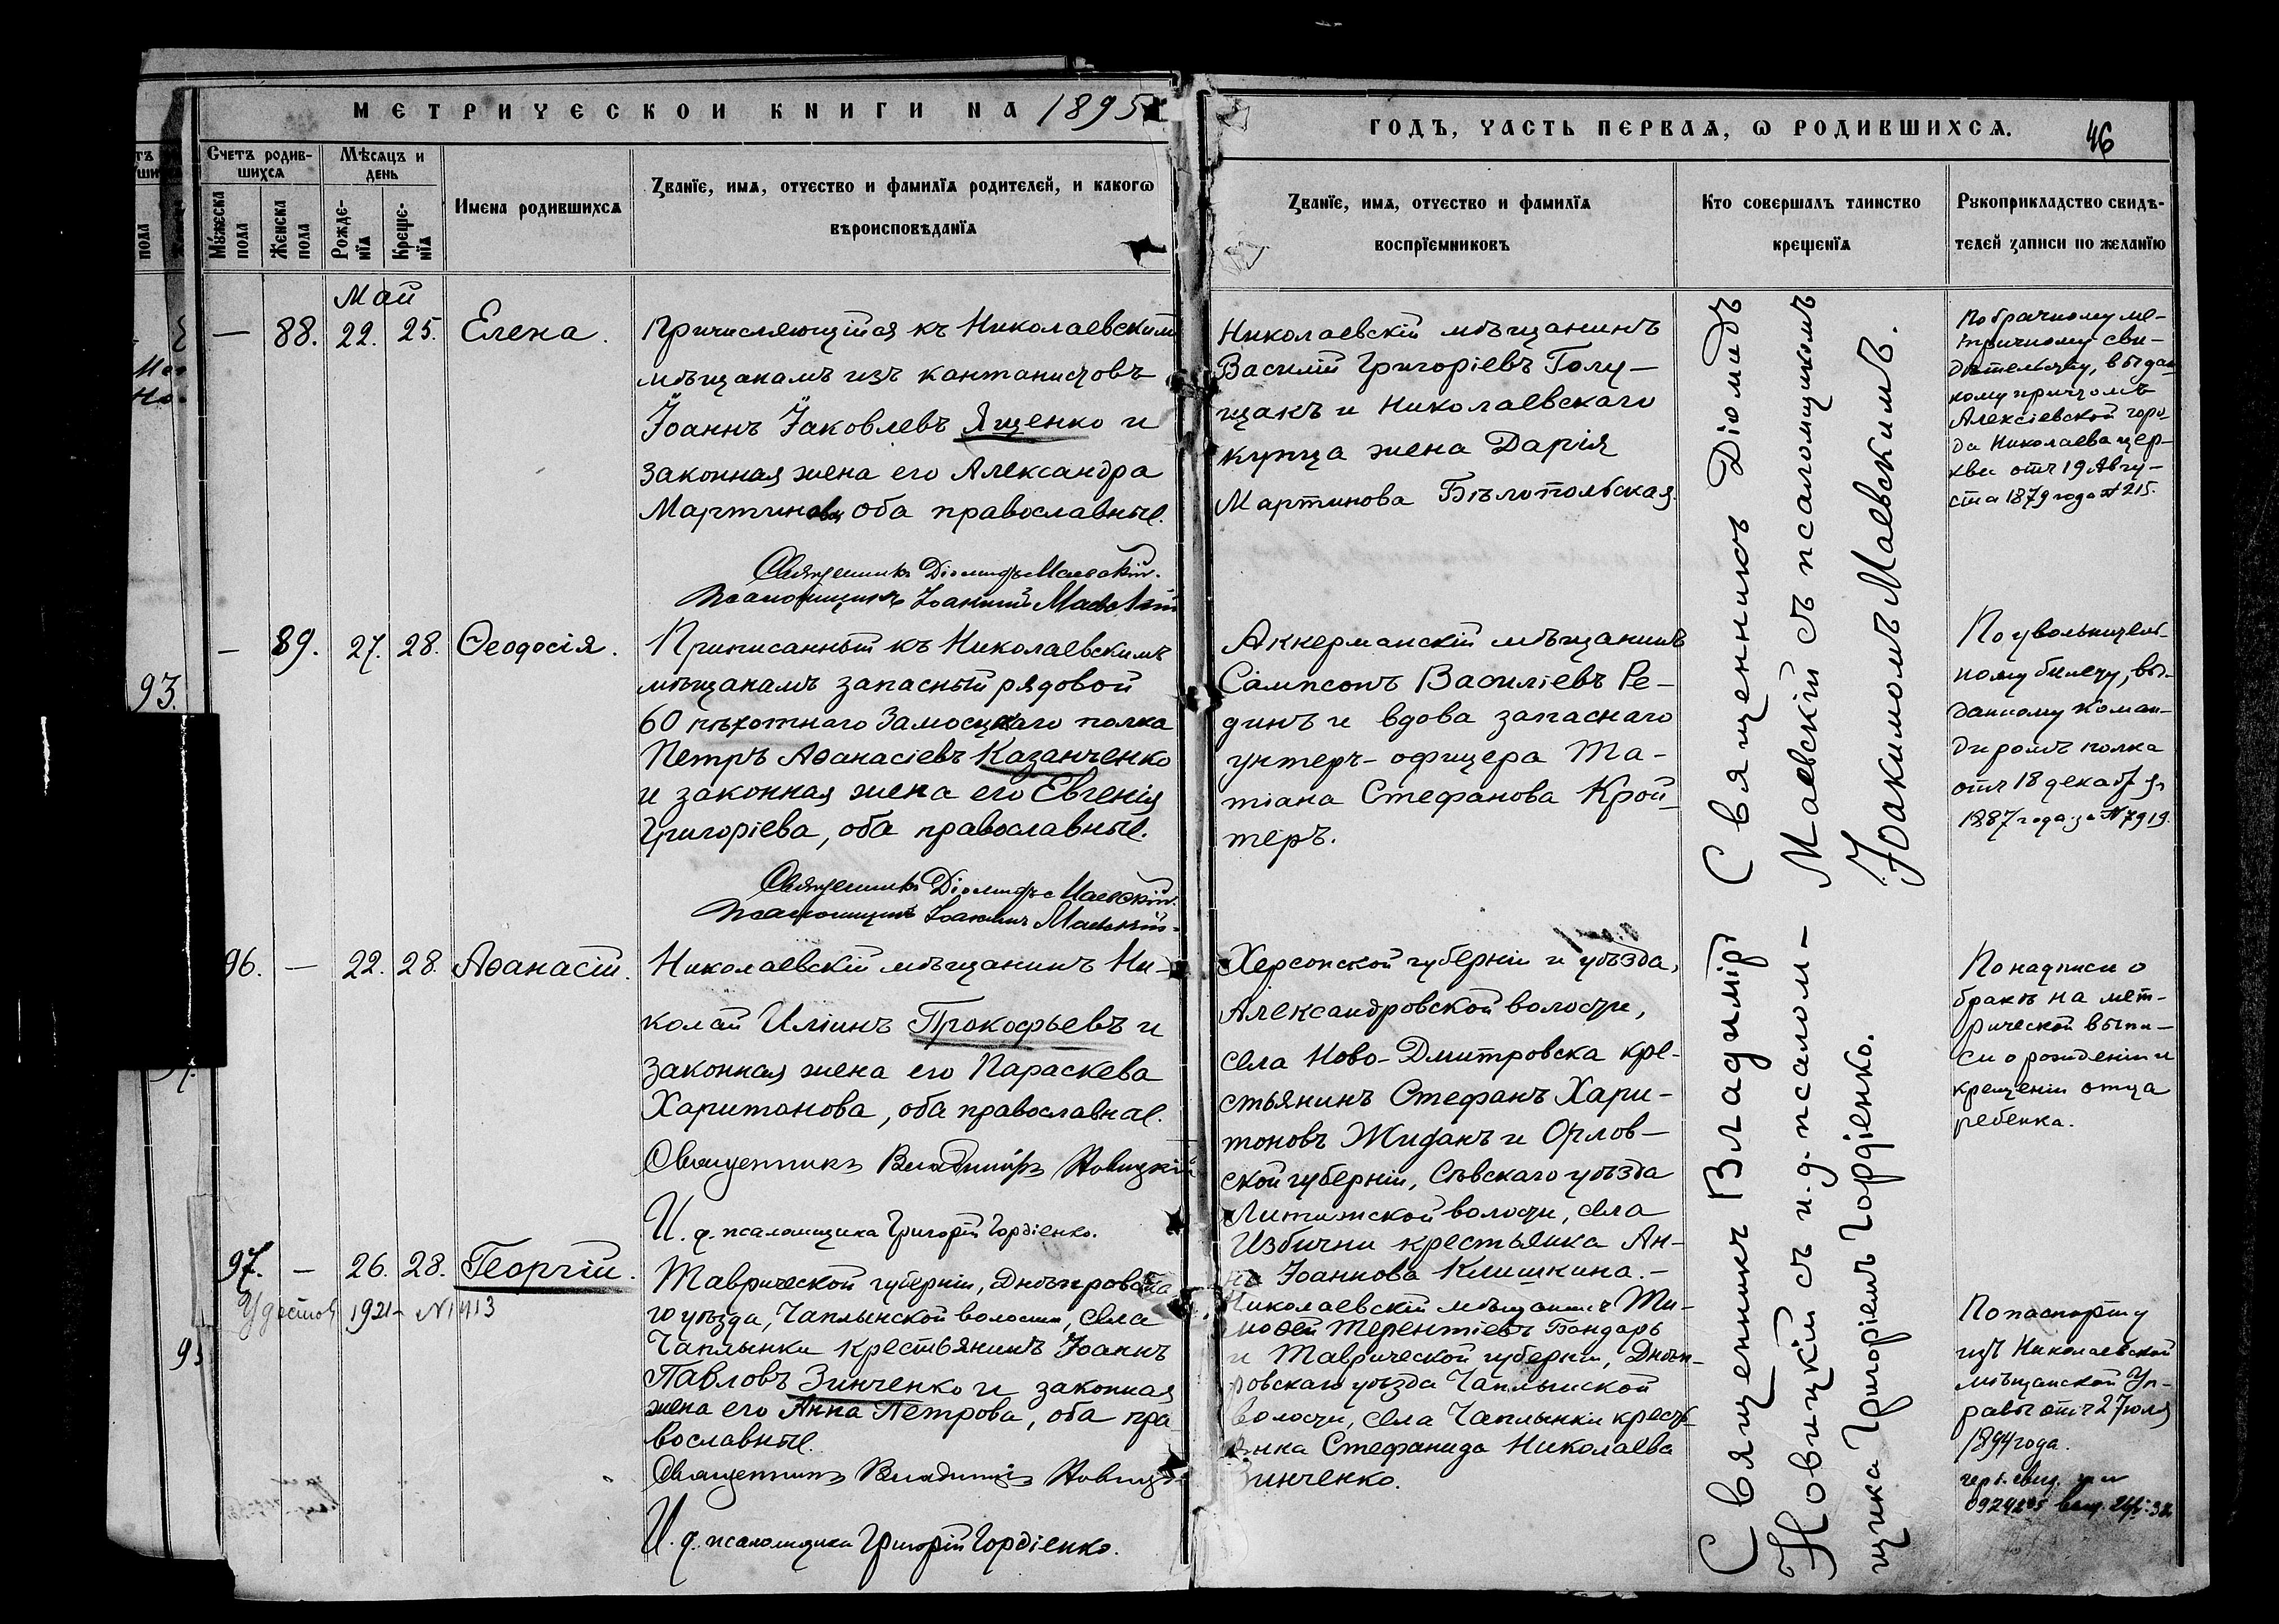 МЕТРИЧЕСКОЙ КНИГИ НА 1895
ГОДЪ, ЧАСТЬ ПЕРВАЯ, Ѡ РОДИВШИХСЯ.
46
Счетъ родив-
шихся
Мѣсяцъ и
день
Мужеска пола
Женска пола
Рожде-
нїя
Креще-
нїя
Имена родившихся
Званїе, имя, отчество и фамилїя родителей, и какогѡ
вѣроисповѣданїя
Званїе, имя, отчество и фамилїя
воспрїемниковъ
Кто совершалъ таинство
крещенїя
Рукоприкладство свидѣ-
телей записи по желанїю
Май
— 88. 22. 25. Елена.
Причисляющійся къ Николаевскимъ
мѣщанамъ изъ кантанистовъ
Іоаннъ Іаковлевъ Ященко и
законная жена его Александра
Мартинова оба православные.
Священникъ Діомидъ Маевскій.
Псаломщикъ Іоакимъ Маевскій
Николаевскій мѣщанинъ
Василій Григоріевъ Голу-
щакъ и Николаевскаго
купца жена Дарія
Мартинова Бѣлопольская.
По брачному ме-
тричному сви-
дѣтельству, выдан-
ному причтомъ
Алексіевской горо-
да Николаева цер-
кви отъ 19 Авгу-
ста 1879 года № 215.
— 89. 27. 28. Ѳеодосія.
Приписанный къ Николаевскимъ
мѣщанамъ запасный рядовой
60 пѣхотнаго Замосцкаго полка
Петръ Аѳанасіевъ Казанченко
и законная жена его Евгенія
Григоріева, оба православные.
Священникъ Діомидъ Маевскій.
Псаломщикъ Іоакимъ Маевскій.
Аккерманскій мѣщанинъ
Сампсонъ Василіевъ Ре-
динъ и вдова запаснаго
унтеръ-офицера Та-
тіана Стефанова Крой-
теръ.
По увольнитель-
ному билету, вы-
данному коман-
диромъ полка
отъ 18 декабря
1887 года за № 7919.
Священникъ Діомидъ
Маевскій съ псаломщикомъ
Іоакимомъ Маевскимъ.
96. — 22. 28. Аѳанасій.
Николаевскій мѣщанинъ Ни-
колай Иліинъ Прокофьевъ и
законная жена его Параскева
Харитонова, оба православные.
Священникъ Владиміръ Новицкій
И. д. псаломщика Григорій Гордіенко.
Херсонской губерніи и уѣзда,
Александровской волости,
села Ново-Дмитровска кре-
стьянинъ Стефанъ Хари-
тоновъ Жиданъ и Орлов-
ской губерніи, Сѣвскаго уѣзда
Литижской волости, села
Избични крестьянка Ан-
на Іоаннова Клишкина.-
По надписи о
бракѣ на мет-
рической выпи-
си о рожденіи и
крещеніи отца
ребенка.
97. — 26. 28. Георгій.
1921
Таврической губерніи, Днѣпровска-
го уѣзда, Чаплынской волости, села
Чаплынки крестьянинъ Іоаннъ
Павловъ Зинченко и законная
жена его Анна Петрова, оба пра
вославные.
Священникъ Владиміръ Новицкій
И. д. псаломщика Григорій Гордіенко.
Николаевскій мѣщанинъ Ти-
моѳей Терентіевъ Бондарь
и Таврической губерніи, Днѣп-
ровскаго уѣзда Чаплынской
волости, села Чаплынки кресть-
янка Стефанида Николаева
Зинченко.
По паспорту
изъ Николаевской
мѣщанской Уп-
равы отъ 27 юля
1894 года.
Священникъ Владиміръ
Новицкій съ и.д. псалом-
щика Григоріемъ Гордіенко.
93.